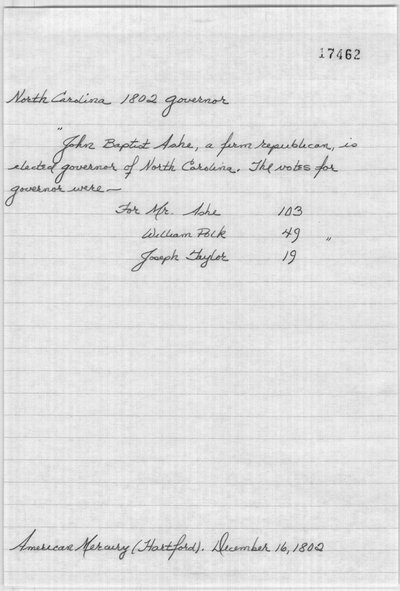 17462
North Carolina 1802 governor
"John Baptist Ashe, a firm republican, is
elected governor of North Carolina. The votes for
governor were—
For Mr. Ashe 103
William Polk 49 "
Joseph Taylor 19
American Mercury (Hartford). December 16, 1802